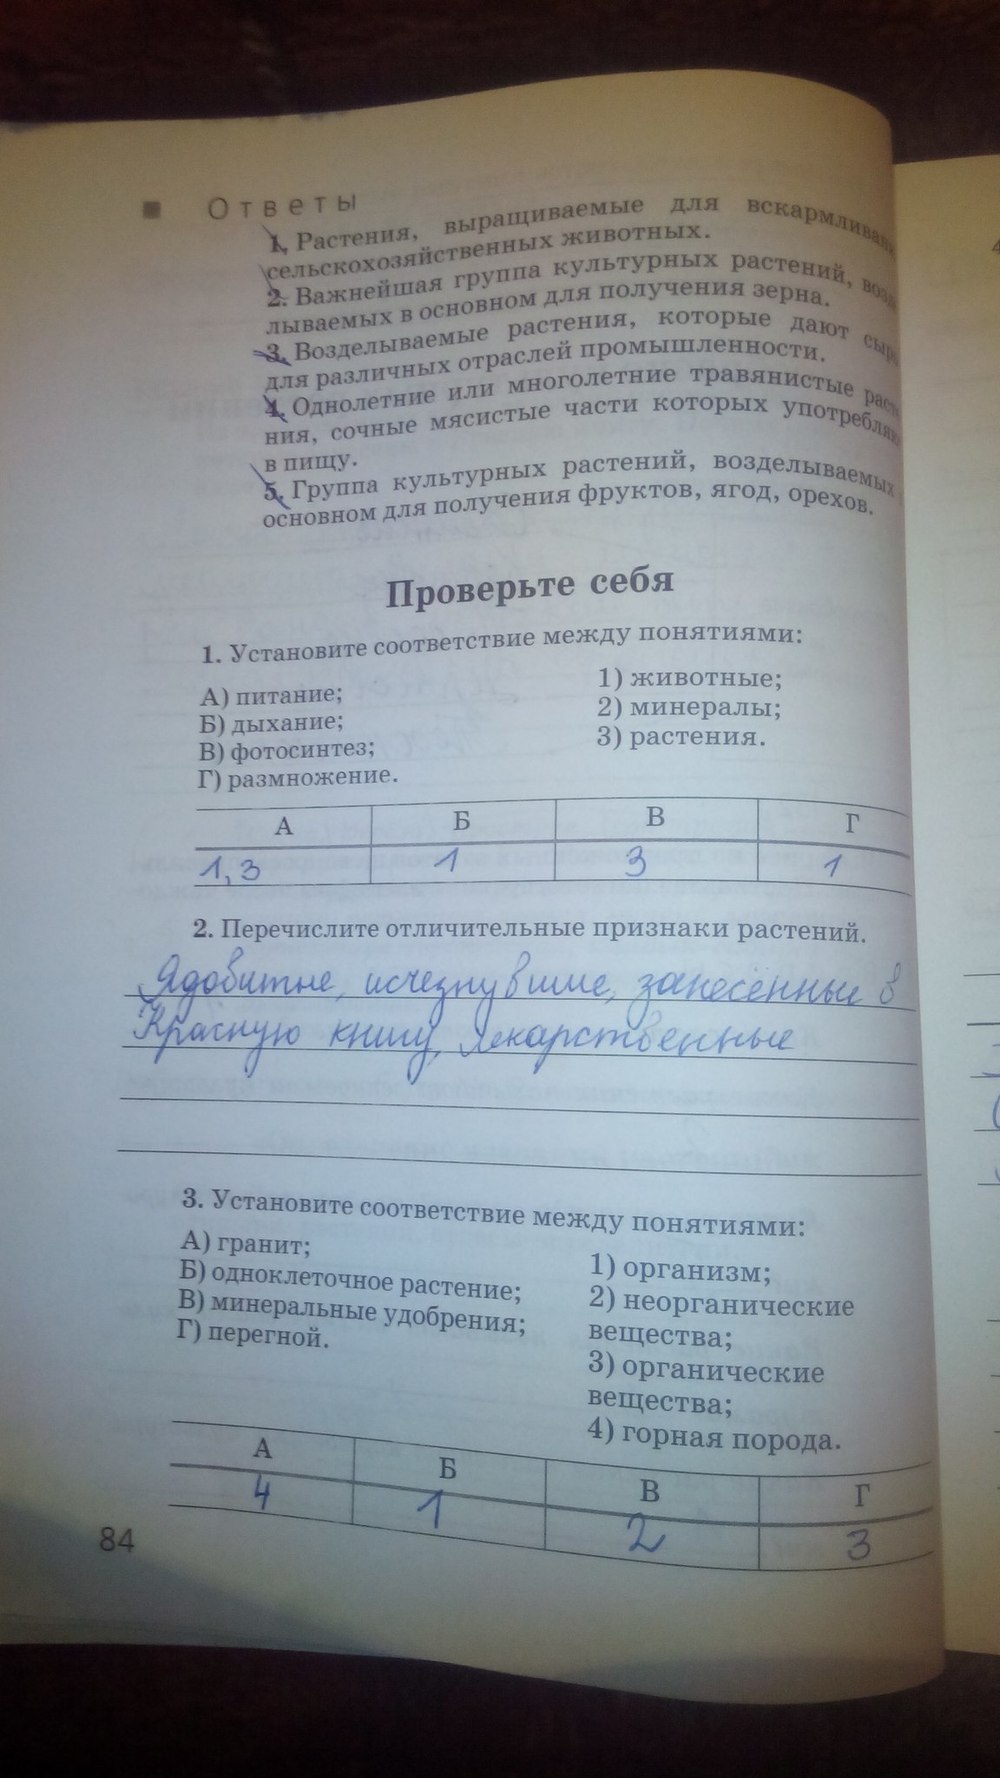 Ответы
1. Растения, выращиваемые для вскармливани
сельскохозяйственных животных.
2. Важнейшая группа культурных растений, возде
лываемых в основном для получения зерна.
3. Возделываемые растения, которые дают сырь
для различных отраслей промышленности.
4. Однолетние или многолетние травянистые расте
ния, сочные мясистые части которых употребляю
в пищу.
5. Группа культурных растений, возделываемых
основном для получения фруктов, ягод, орехов.
Проверьте себя
1. Установите соответствие между понятиями:
А) питание;
Б) дыхание;
В) фотосинтез;
Г) размножение.
1) животные;
2) минералы;
3) растения.
А Б В Г
1,3 1 3 1
2. Перечислите отличительные признаки растений.
Ядовитые, исчезнувшие, занесённые в
Красную книгу, лекарственные
3. Установите соответствие между понятиями:
А) гранит;
Б) одноклеточное растение;
В) минеральные удобрения;
Г) перегной.
1) организм;
2) неорганические
вещества;
3) органические
вещества;
4) горная порода.
А Б В Г
4 1 2 3
84